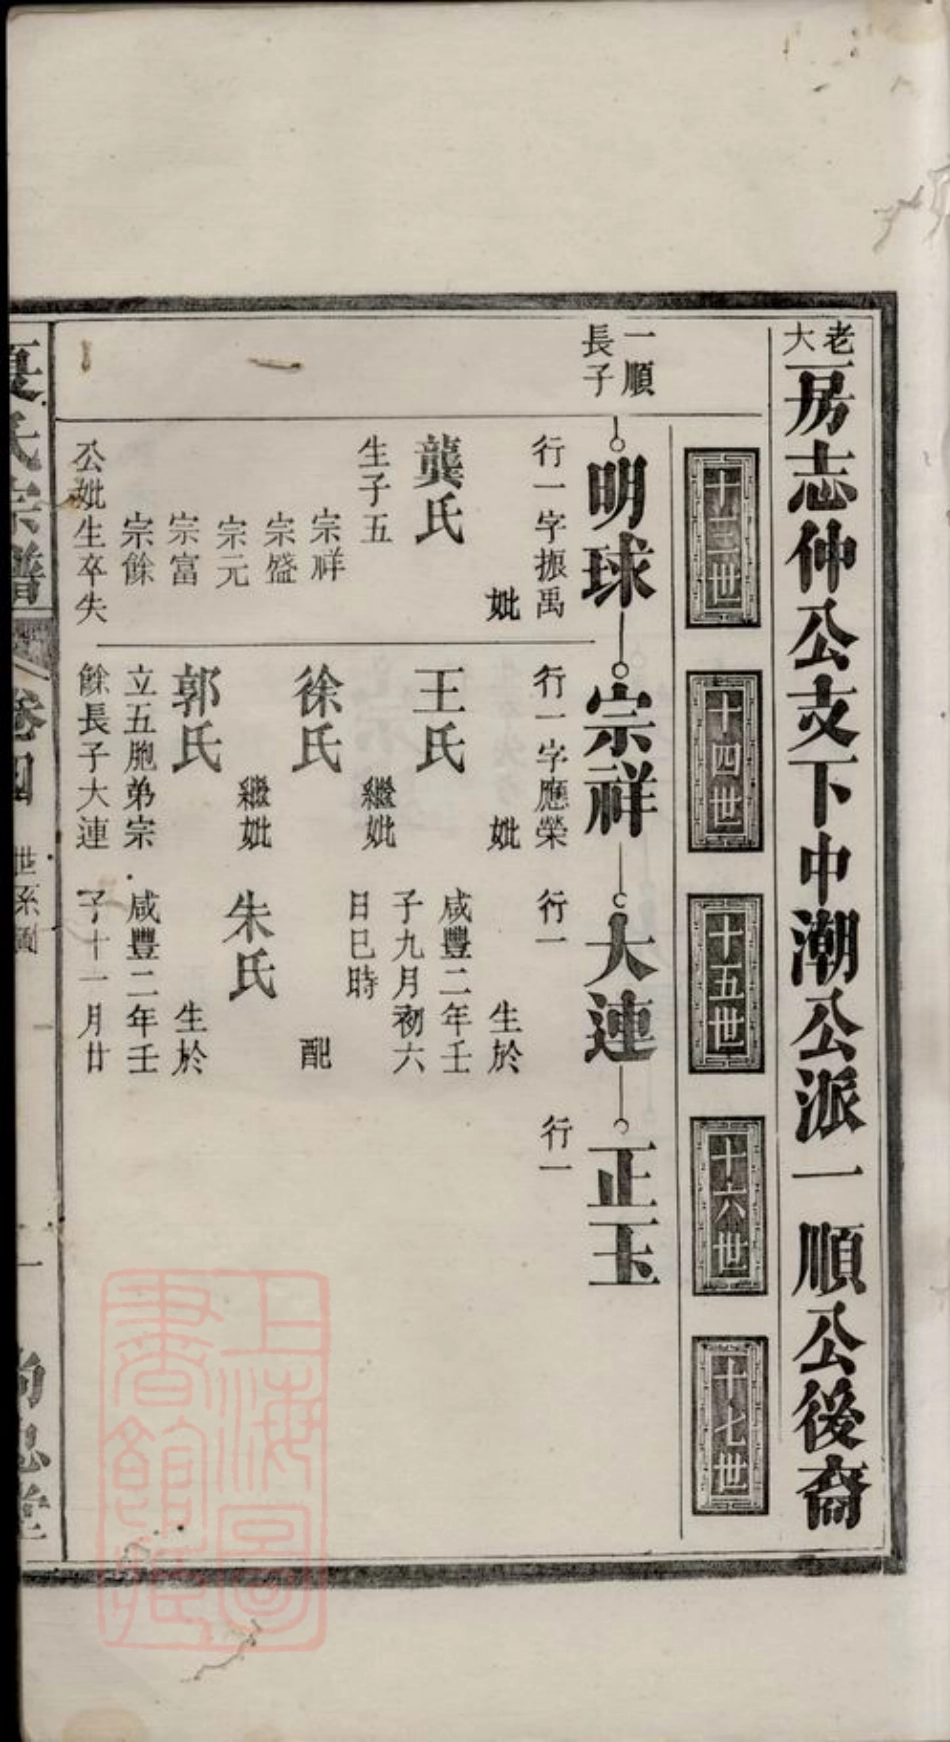 老大房志仲公支下中潮公派一順公後裔
十三世
十四世
十五世
十六世
十七世
一順
長子
明球
行一字振禹
妣
龔氏
生子五
宗祥
宗盛
宗元
宗富
宗餘
公妣生卒失
宗祥
行一字應榮
妣
王氏
繼妣
徐氏
繼妣
郭氏
立五胞弟宗
餘長子大連
大連
行一
生於
咸豐二年壬
子九月初六
日巳時
配
朱氏
生於
咸豐二年壬
子十一月廿
正玉
行一
氏宗譜
卷四
世系圖
一
上海圖書館藏